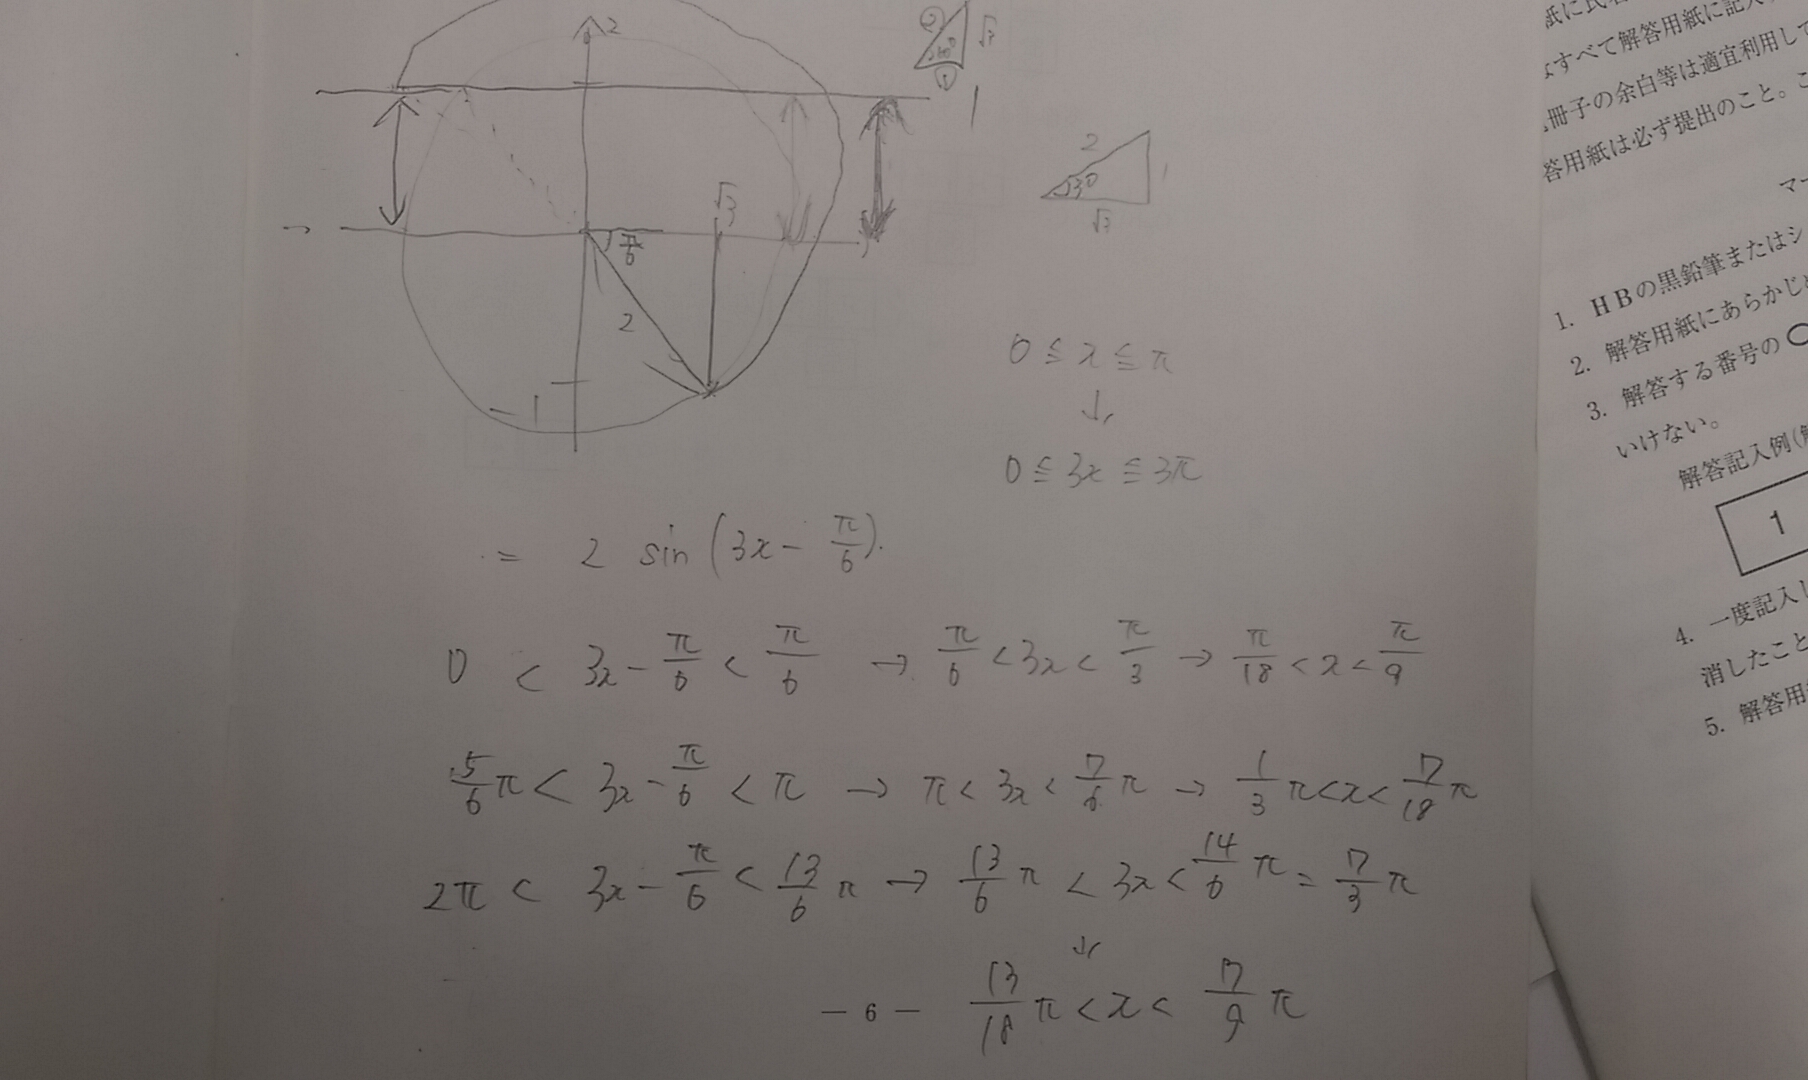 2
② 60° √3
①
1
2
30°
√3
√3
π/6
2
-1
0 ≦ x ≦ π
↓
0 ≦ 3x ≦ 3π
= 2 sin (3x - π/6).
0 < 3x - π/6 < π/6 → π/6 < 3x < π/3 → π/18 < x < π/9
5/6 π < 3x - π/6 < π → π < 3x < 7/6 π → 1/3 π < x < 7/18 π
2π < 3x - π/6 < 13/6 π → 13/6 π < 3x < 14/6 π = 7/3 π
↓
13/18 π < x < 7/9 π
— 6 —
すべて解答用紙に記入
冊子の余白等は適宜利用して
答用紙は必ず提出のこと。こ
マー
1. HBの黒鉛筆またはシ
2. 解答用紙にあらかじめ
3. 解答する番号の○
いけない。
解答記入例(解
1
4. 一度記入し
消したこと
5. 解答用